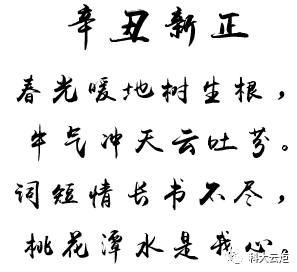 辛丑新正
春光暖地树生根，
牛气冲天云吐芬。
词短情长书不尽，
桃花潭水是我心。
科大云炬